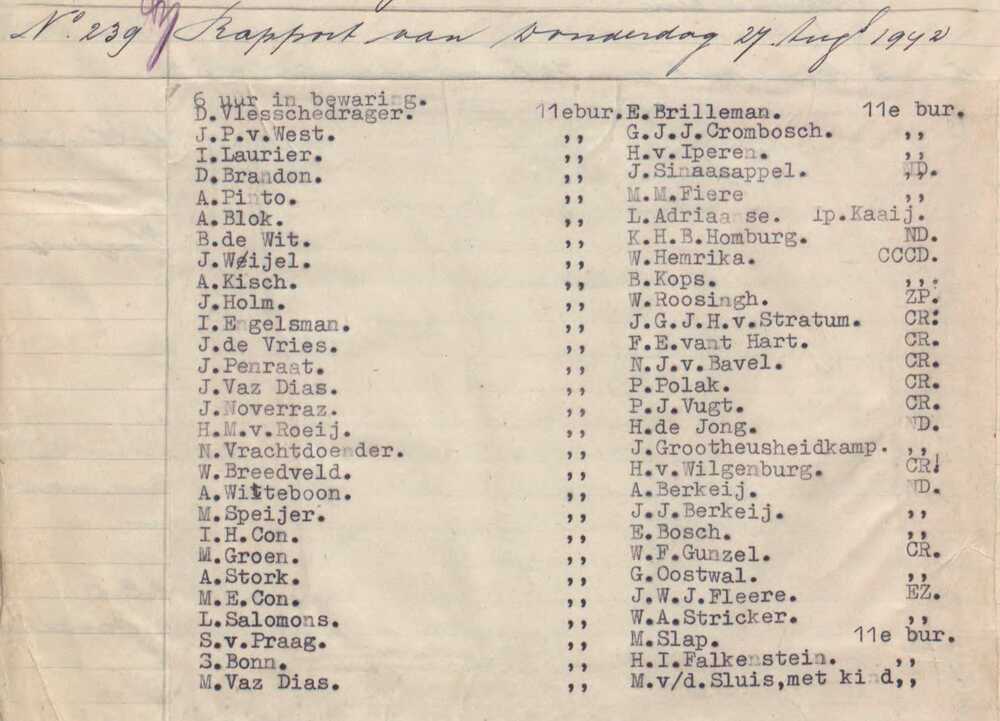 No. 239 Rapport van Donderdag 27 Augs 1942
6 uur in bewaring.
D.Vlesschedrager. 11ebur. E.Brilleman. 11e bur.
J.P.v.West. ,, G.J.J.Crombosch. ,,
I.Laurier. ,, H.v.Iperen. ,,
D.Brandon. ,, J.Sinaasappel. ND.
A.Pinto. ,, M.M.Fiere ,,
A.Blok. ,, L.Adriaanse. Ip.Kaaij.
B.de Wit. ,, K.H.B.Homburg. ND.
J.Weijel. ,, W.Hemrika. CCCD.
A.Kisch. ,, B.Kops. ,,.
J.Holm. ,, W.Roosingh. ZP.
I.Engelsman. ,, J.G.J.H.v.Stratum. CR.
J.de Vries. ,, F.E.vant Hart. CR.
J.Penraat. ,, N.J.v.Bavel. CR.
J.Vaz Dias. ,, P.Polak. CR.
J.Noverraz. ,, P.J.Vugt. CR.
H.M.v.Roeij. ,, H.de Jong. ND.
N.Vrachtdoender. ,, J.Grootheusheidkamp. ,,
W.Breedveld. ,, H.v.Wilgenburg. CR.
A.Witteboon. ,, A.Berkeij. ND.
M.Speijer. ,, J.J.Berkeij. ,,
I.H.Con. ,, E.Bosch. ,,
M.Groen. ,, W.F.Gunzel. CR.
A.Stork. ,, G.Oostwal. ,,
M.E.Con. ,, J.W.J.Fleere. EZ.
L.Salomons. ,, W.A.Stricker. ,,
S.v.Praag. ,, M.Slap. 11e bur.
S.Bonn. ,, H.I.Falkenstein. ,,
M.Vaz Dias. ,, M.v/d.Sluis,met kind,,